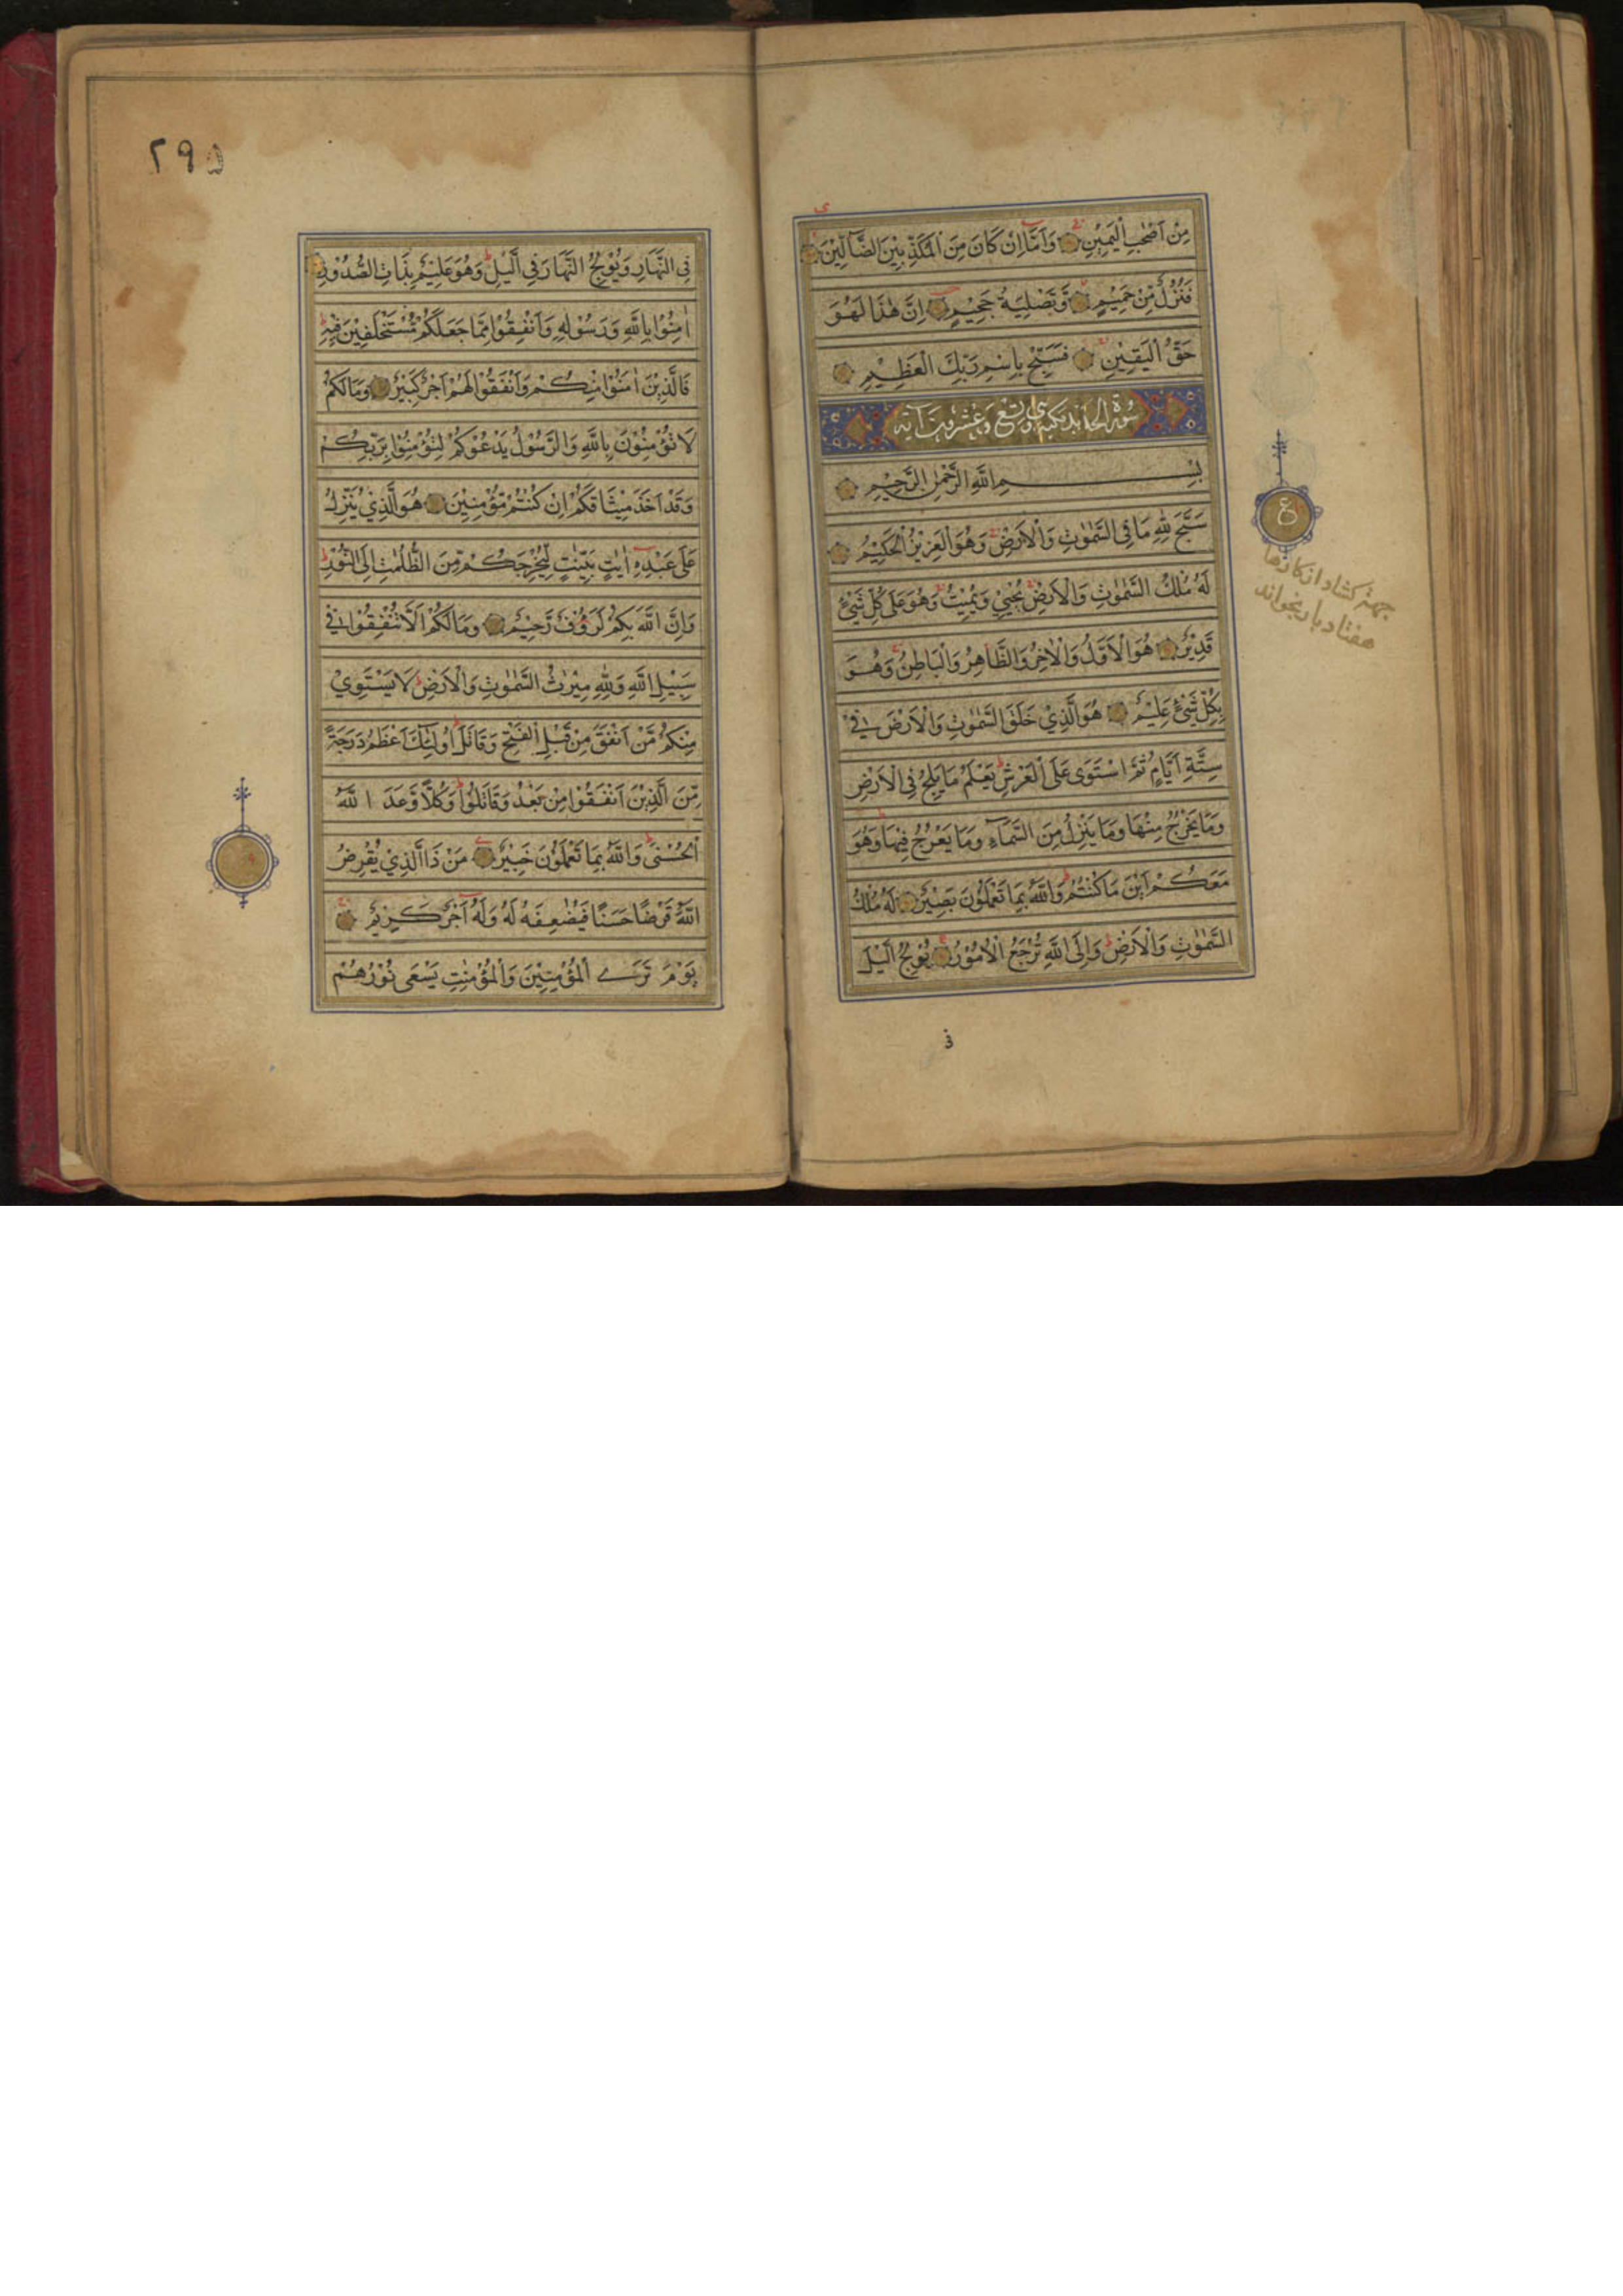 مِنْ اَصْحٰبِ الْيَمِيْنِ وَاَمَّا اِنْ كَانَ مِنَ الْمُكَذِّبِيْنَ الضَّآلِّيْنَ
فَنُزُلٌ مِّنْ حَمِيْمٍ وَّتَصْلِيَةُ جَحِيْمٍ اِنَّ هٰذَا لَهُوَ
حَقُّ الْيَقِيْنِ فَسَبِّحْ بِاسْمِ رَبِّكَ الْعَظِيْمِ
سورة الحديد وتسع وعشرون آية
بِسْمِ اللّٰهِ الرَّحْمٰنِ الرَّحِيْمِ
سَبَّحَ لِلّٰهِ مَا فِى السَّمٰوٰتِ وَالْاَرْضِ وَهُوَ الْعَزِيْزُ الْحَكِيْمُ
لَهُ مُلْكُ السَّمٰوٰتِ وَالْاَرْضِ يُحْيِيْ وَيُمِيْتُ وَهُوَ عَلٰى كُلِّ شَيْءٍ
قَدِيْرٌ هُوَ الْاَوَّلُ وَالْاٰخِرُ وَالظَّاهِرُ وَالْبَاطِنُ وَهُوَ
بِكُلِّ شَيْءٍ عَلِيْمٌ هُوَ الَّذِيْ خَلَقَ السَّمٰوٰتِ وَالْاَرْضَ فِيْ
سِتَّةِ اَيَّامٍ ثُمَّ اسْتَوٰى عَلَى الْعَرْشِ يَعْلَمُ مَا يَلِجُ فِى الْاَرْضِ
وَمَا يَخْرُجُ مِنْهَا وَمَا يَنْزِلُ مِنَ السَّمَآءِ وَمَا يَعْرُجُ فِيْهَا وَهُوَ
مَعَكُمْ اَيْنَ مَا كُنْتُمْ وَاللّٰهُ بِمَا تَعْمَلُوْنَ بَصِيْرٌ لَهُ مُلْكُ
السَّمٰوٰتِ وَالْاَرْضِ وَاِلَى اللّٰهِ تُرْجَعُ الْاُمُوْرُ يُوْلِجُ الَّيْلَ
فى
ع
جهة كشاد از كارها
هفتاد بار بخواند
٢٩۵
فِى النَّهَارِ وَيُوْلِجُ النَّهَارَ فِى الَّيْلِ وَهُوَ عَلِيْمٌ بِذَاتِ الصُّدُوْرِ
اٰمِنُوْا بِاللّٰهِ وَرَسُوْلِهِ وَاَنْفِقُوْا مِمَّا جَعَلَكُمْ مُّسْتَخْلَفِيْنَ فِيْهِ
فَالَّذِيْنَ اٰمَنُوْا مِنْكُمْ وَاَنْفَقُوْا لَهُمْ اَجْرٌ كَبِيْرٌ وَمَا لَكُمْ
لَا تُؤْمِنُوْنَ بِاللّٰهِ وَالرَّسُوْلُ يَدْعُوْكُمْ لِتُؤْمِنُوْا بِرَبِّكُمْ
وَقَدْ اَخَذَ مِيْثَاقَكُمْ اِنْ كُنْتُمْ مُّؤْمِنِيْنَ هُوَ الَّذِيْ يُنَزِّلُ
عَلٰى عَبْدِهِ اٰيٰتٍ بَيِّنٰتٍ لِّيُخْرِجَكُمْ مِّنَ الظُّلُمٰتِ اِلَى النُّوْرِ
وَاِنَّ اللّٰهَ بِكُمْ لَرَؤُفٌ رَّحِيْمٌ وَمَا لَكُمْ اَلَّا تُنْفِقُوْا فِيْ
سَبِيْلِ اللّٰهِ وَلِلّٰهِ مِيْرٰثُ السَّمٰوٰتِ وَالْاَرْضِ لَا يَسْتَوِيْ
مِنْكُمْ مَّنْ اَنْفَقَ مِنْ قَبْلِ الْفَتْحِ وَقَاتَلَ اُولٰٓئِكَ اَعْظَمُ دَرَجَةً
مِّنَ الَّذِيْنَ اَنْفَقُوْا مِنْ بَعْدُ وَقَاتَلُوْا وَكُلًّا وَّعَدَ اللّٰهُ
الْحُسْنٰى وَاللّٰهُ بِمَا تَعْمَلُوْنَ خَبِيْرٌ مَنْ ذَا الَّذِيْ يُقْرِضُ
اللّٰهَ قَرْضًا حَسَنًا فَيُضٰعِفَهُ لَهُ وَلَهُ اَجْرٌ كَرِيْمٌ
يَوْمَ تَرَى الْمُؤْمِنِيْنَ وَالْمُؤْمِنٰتِ يَسْعٰى نُوْرُهُمْ